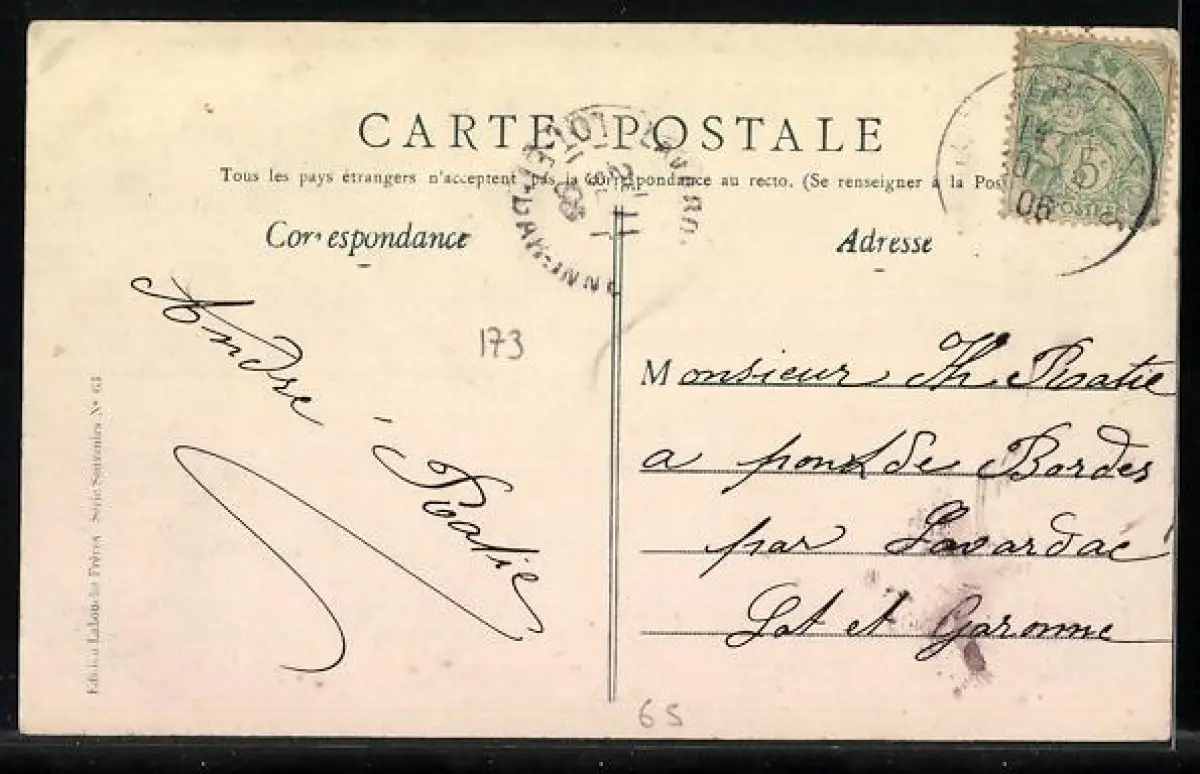 CARTE POSTALE
Tous les pays étrangers n'acceptent pas la correspondance au recto. (Se renseigner à la Pos
Correspondance
Adresse
André Ratie
173
Monsieur Th. Ratie
a pont de Bordes
par Lavardac
Lot et Garonne
Edition Labouche Frères Série Souvenirs Nº 63
65
5
POSTES
06
LOT-ET-GAR